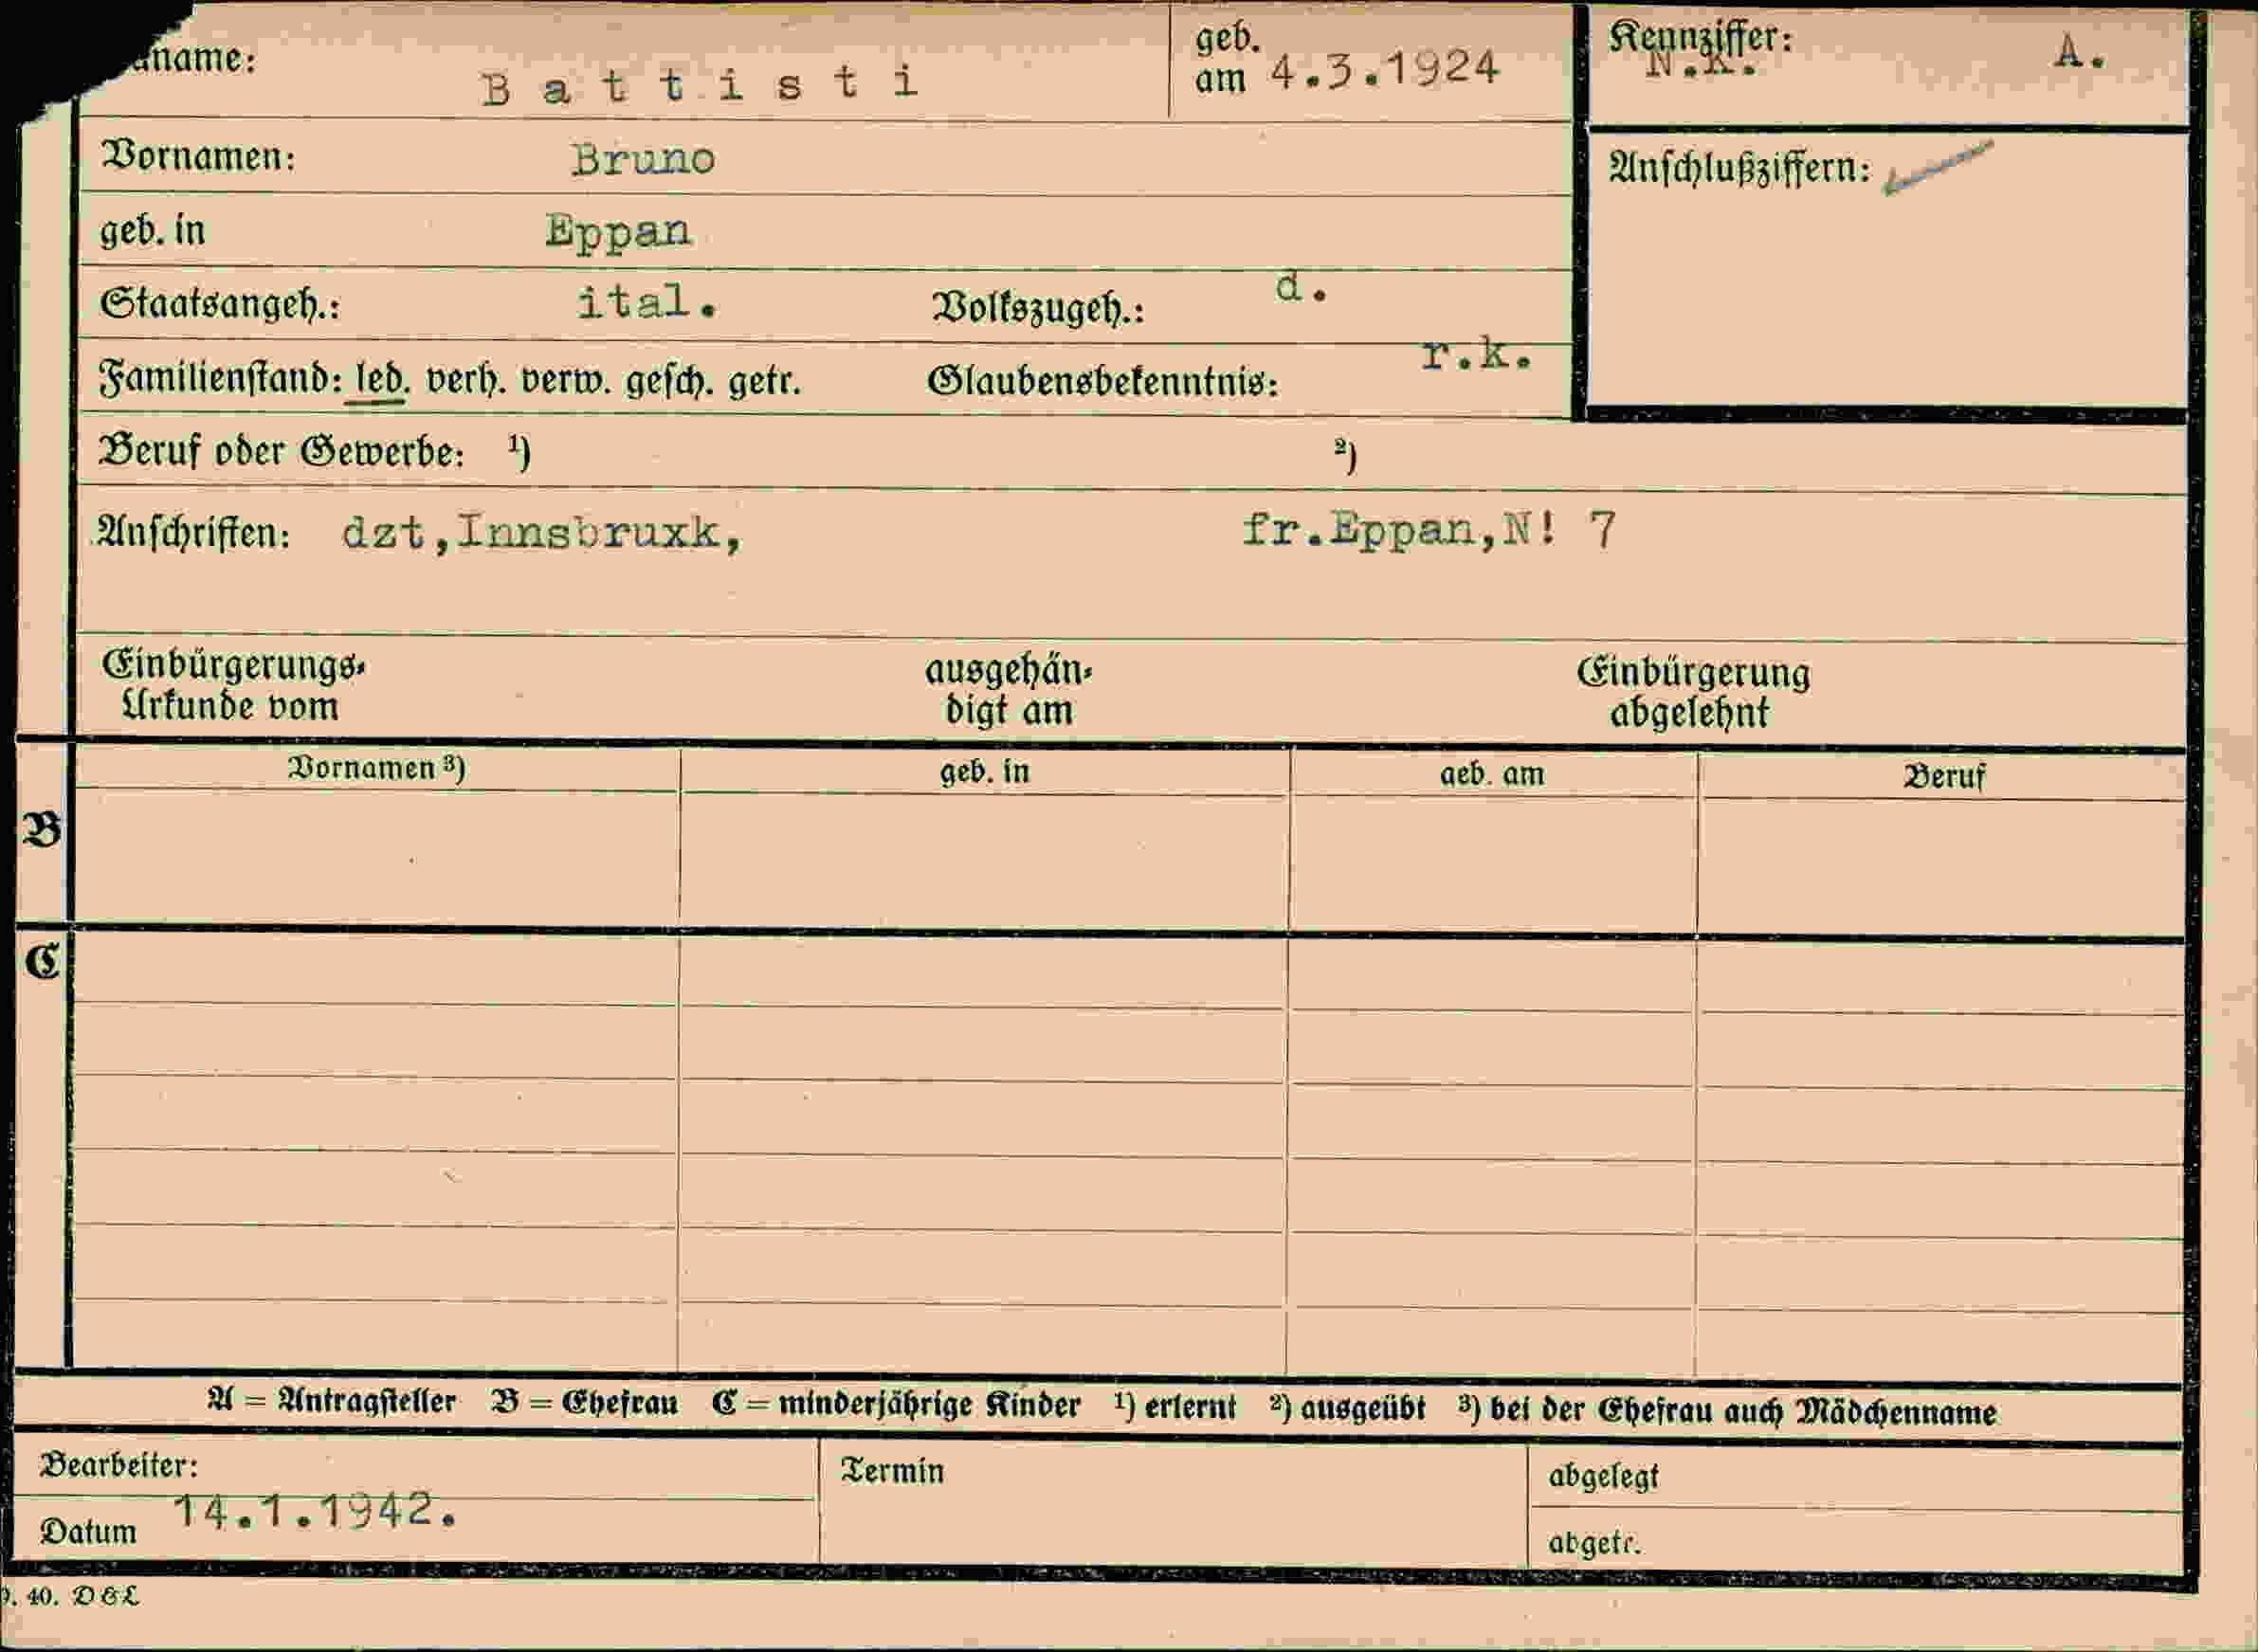 name: B a t t i s t i geb. am 4.3.1924
Kennziffer: N.K. A.
Vornamen: Bruno
Anschlußziffern:
geb. in Eppan
Staatsangeh.: ital. Volkszugeh.: d.
Familienstand: led. verh. verw. gesch. getr. Glaubensbekenntnis: r.k.
Beruf oder Gewerbe: ¹) ²)
Anschriften: dzt,Innsbruxk, fr.Eppan,N! 7
Einbürgerungs- ausgehän- Einbürgerung
Urkunde vom digt am abgelehnt
Vornamen ³) geb. in geb. am Beruf
B
C
A = Antragsteller B = Ehefrau C = minderjährige Kinder ¹) erlernt ²) ausgeübt ³) bei der Ehefrau auch Mädchenname
Bearbeiter: Termin abgelegt
Datum 14.1.1942. abgetr.
40. D&L